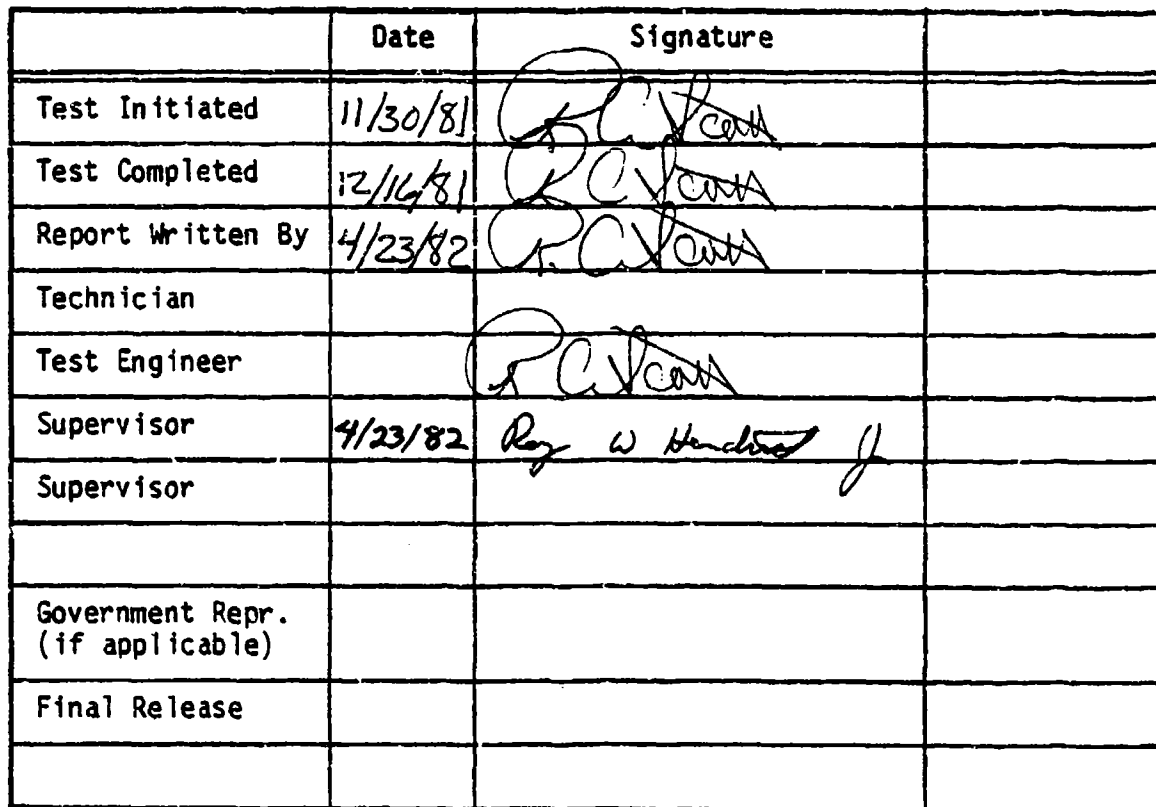 Date Signature
Test Initiated 11/30/81 R C Scott
Test Completed 12/16/81 R C Scott
Report Written By 4/23/82 R. C. Scott
Technician
Test Engineer R C Scott
Supervisor 4/23/82 Roy W Jr
Supervisor
Government Repr.
(if applicable)
Final Release